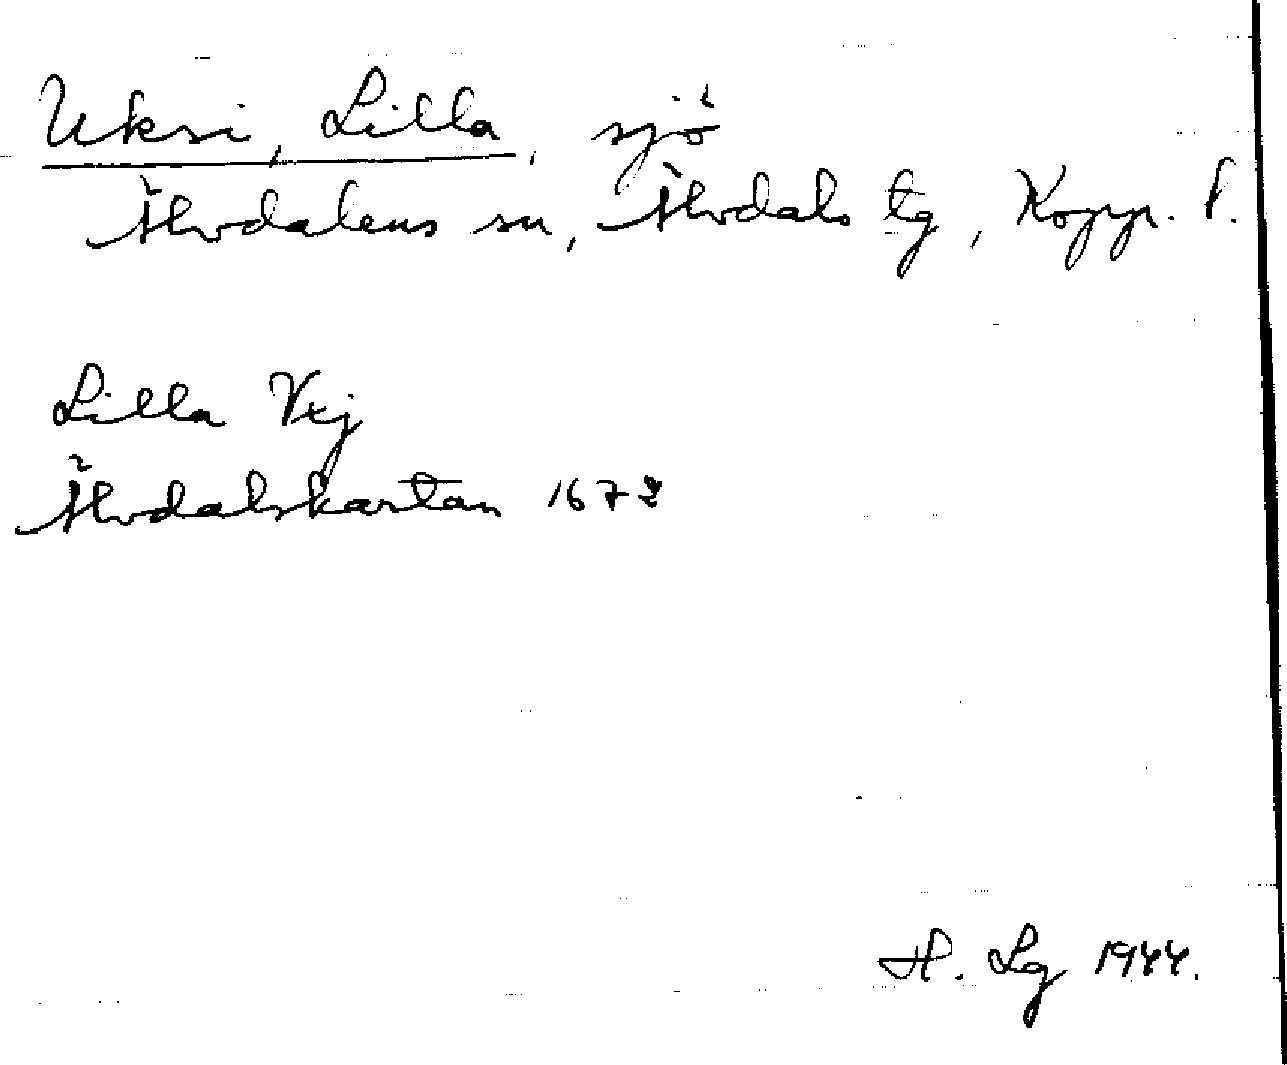 Uksi, Lilla, sjö
Älvdalens sn, Älvdals tg, Kopp. l.
Lilla Vxj
Älvdalskartan 1672
H. Lg 1944.